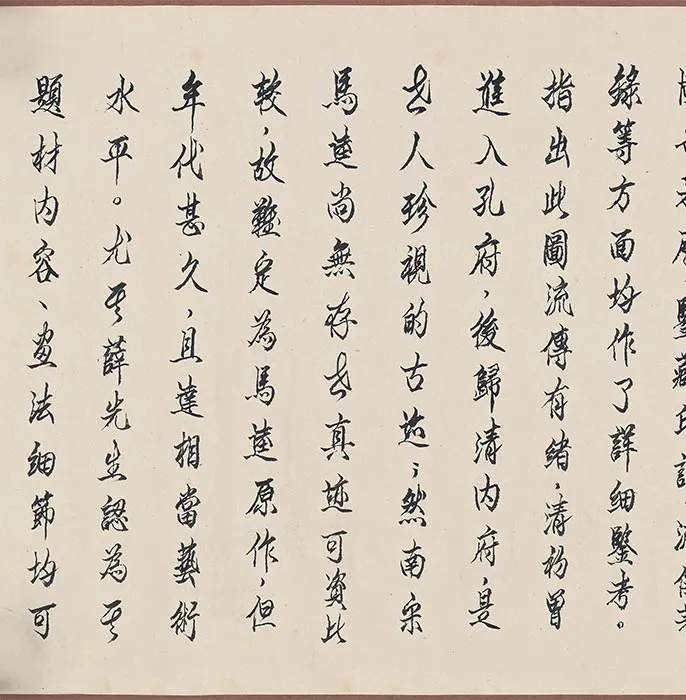 鑒藏印記、流傳著
錄等方面均作了詳細鑒考。
指出此圖流傳有緒，清初曾
進入孔府，後歸清内府，是
世人珍視的古迹；然南宋
馬逵尚無存世真迹可資比
較，故難定為馬逵原作，但
年代甚久，且達相當藝術
水平。尤其薛先生認為其
題材内容、畫法細節均可